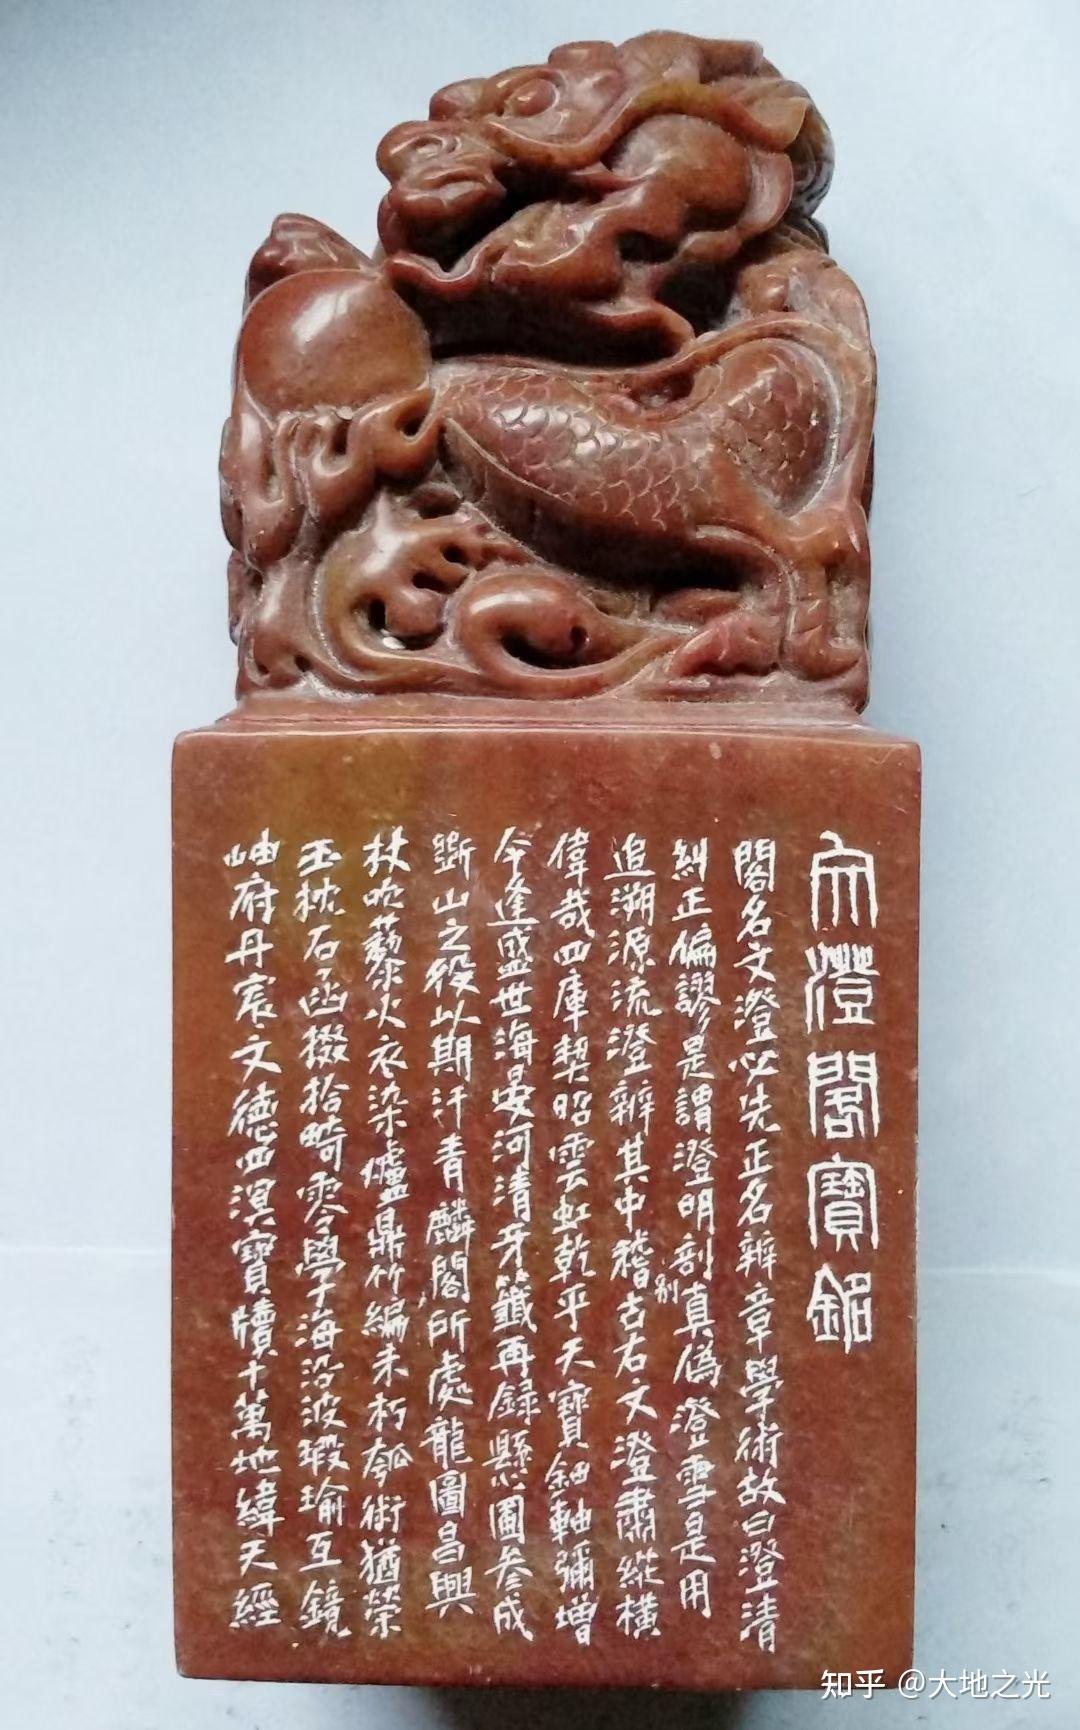 文澄閣寶銘
閣名文澄必先正名辨章學術故曰澄清
糾正偏謬是謂澄明剖真偽澄雪是用
別
追溯源流澄辨其中稽古右文澄肅縱橫
偉哉四庫契昭雲虹乾平天寶鈿軸彌增
今逢盛世海晏河清牙籤再錄懸圃參成
斷山之役以期汗青麟閣所處龍圖昌興
杖吹藜火衣染爐鼎竹編未朽瓠術猶榮
玉枕石函掇拾畸零學海沿波瑕瑜互鏡
岫府丹宸文德四溟寶牘十萬地緯天經
知乎 @大地之光